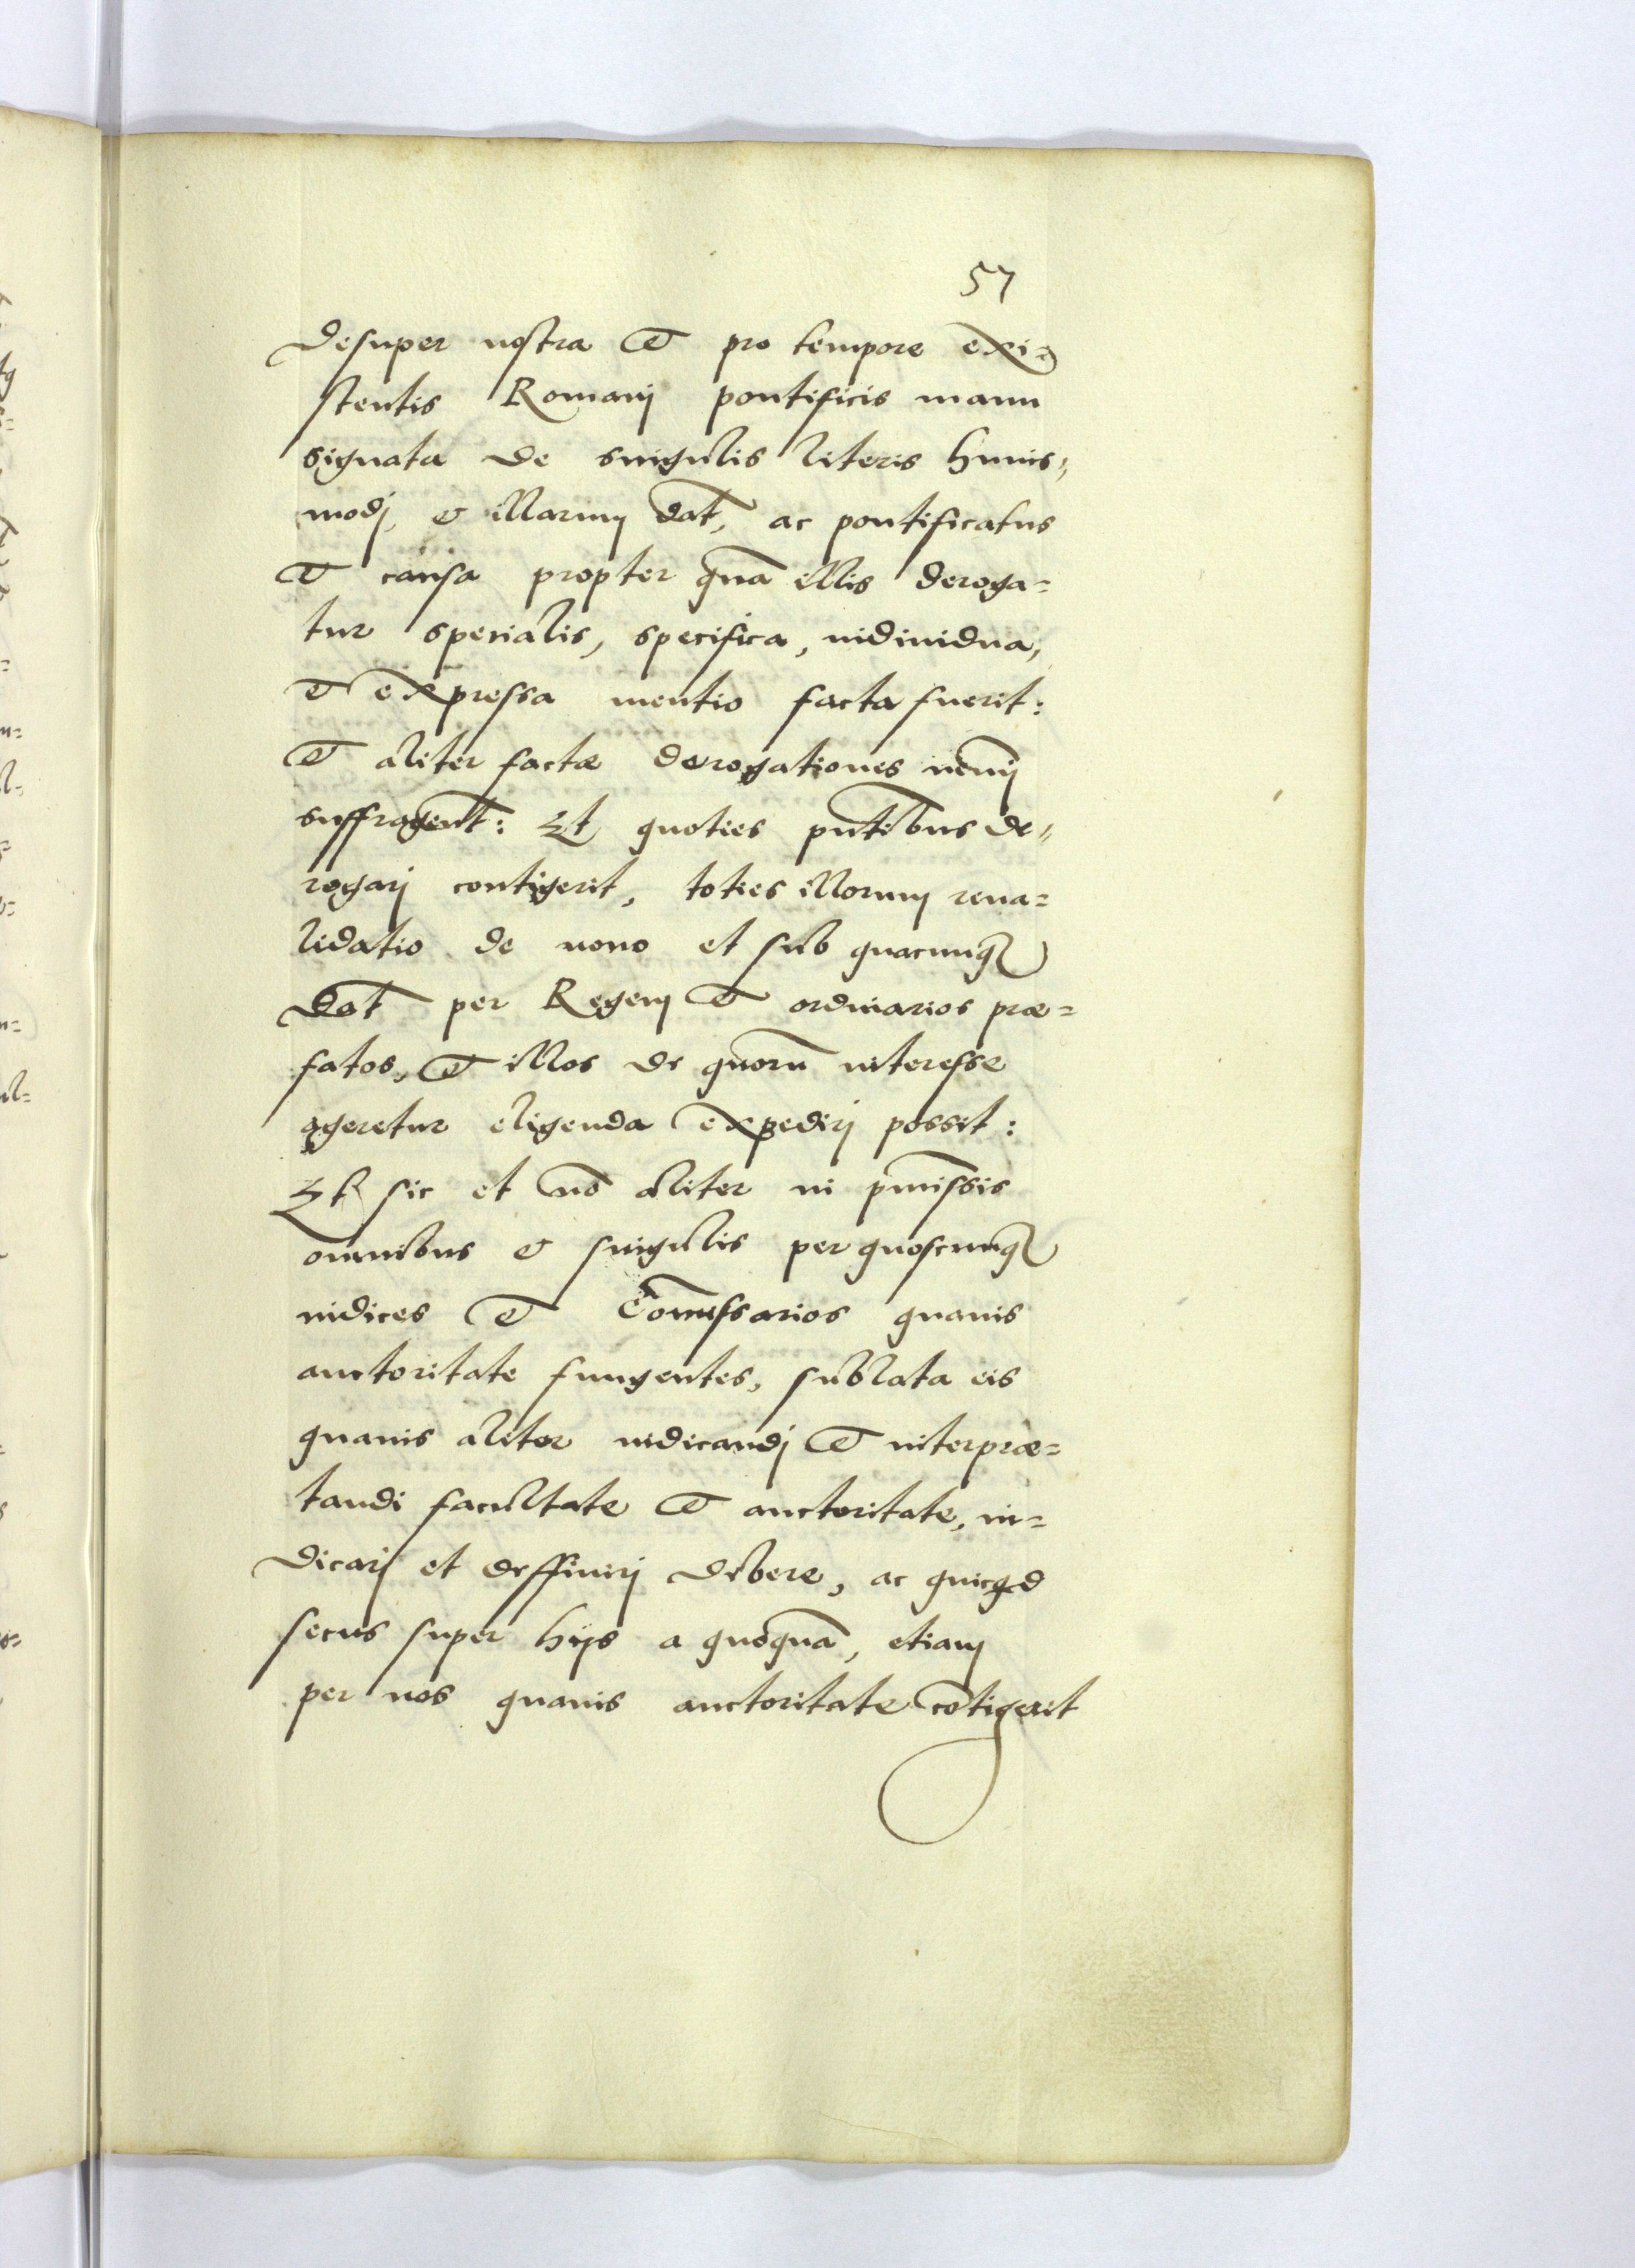 57
desuper nostra et pro tempore exi=
stentis Romanj pontificis manu
signata de singulis literis huius=
modj, & illarum dat̃, ac pontificatus
et causa propter quã illis deroga=
tur specialis, specifica, indiuidua,
et expressa mentio facta fuerit:
et aliter factæ derogationes nemĩ
suffragent̃: Et quoties pñtibus de=
rogarj contigerit, toties illorum reua=
lidatio de nouo et sub quacunq̃
dat̃ per Regem et ordinarios præ=
fatos, et illos de quorũ interesse
ageretur eligenda expedirj possit:
Et sic et nõ aliter in pmissis
omnibus & singulis per quoscunq̃
iudices et Com̃issarios quauis
auctoritate fungentes, sublata eis
quauis aliter iudicandj et interpræ=
tandi facultate et auctoritate, iu=
dicarj et deffinirj debere, ac quicqd
secus super hijs a quoquã, etiam
per nos quauis auctoritate cõtigerit